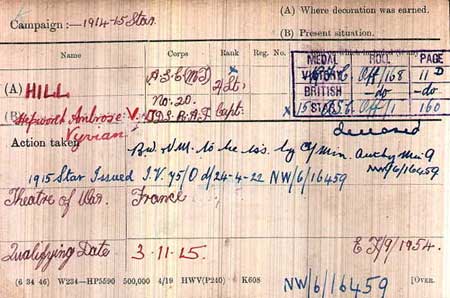 Campaign :— 1914-15 Star.
(A) Where decoration was earned.
(B) Present situation.
Name Corps Rank Reg. No.
MEDAL ROLL PAGE
VICTORY Off/168 11 D
BRITISH -do- -do-
15 STAR Off/1 160
(A) HILL A.S.C (M.T) 2/Lt.
(B) Hepworth Ambrose V. Vyvian No. 20. T.D.S. R.A.F Capt.
deceased
Action taken B.W. V.M. to be iss. by Min. NW/6/16459
1915 Star Issued I.V. 75/D d/24-4-22 NW/6/16459
Theatre of War. France
Qualifying Date 3.11.15.
E F/9/1954.
(6 34 46) W234—HP5590 500,000 4/19 HWV(P240) K608
NW/6/16459
[OVER.